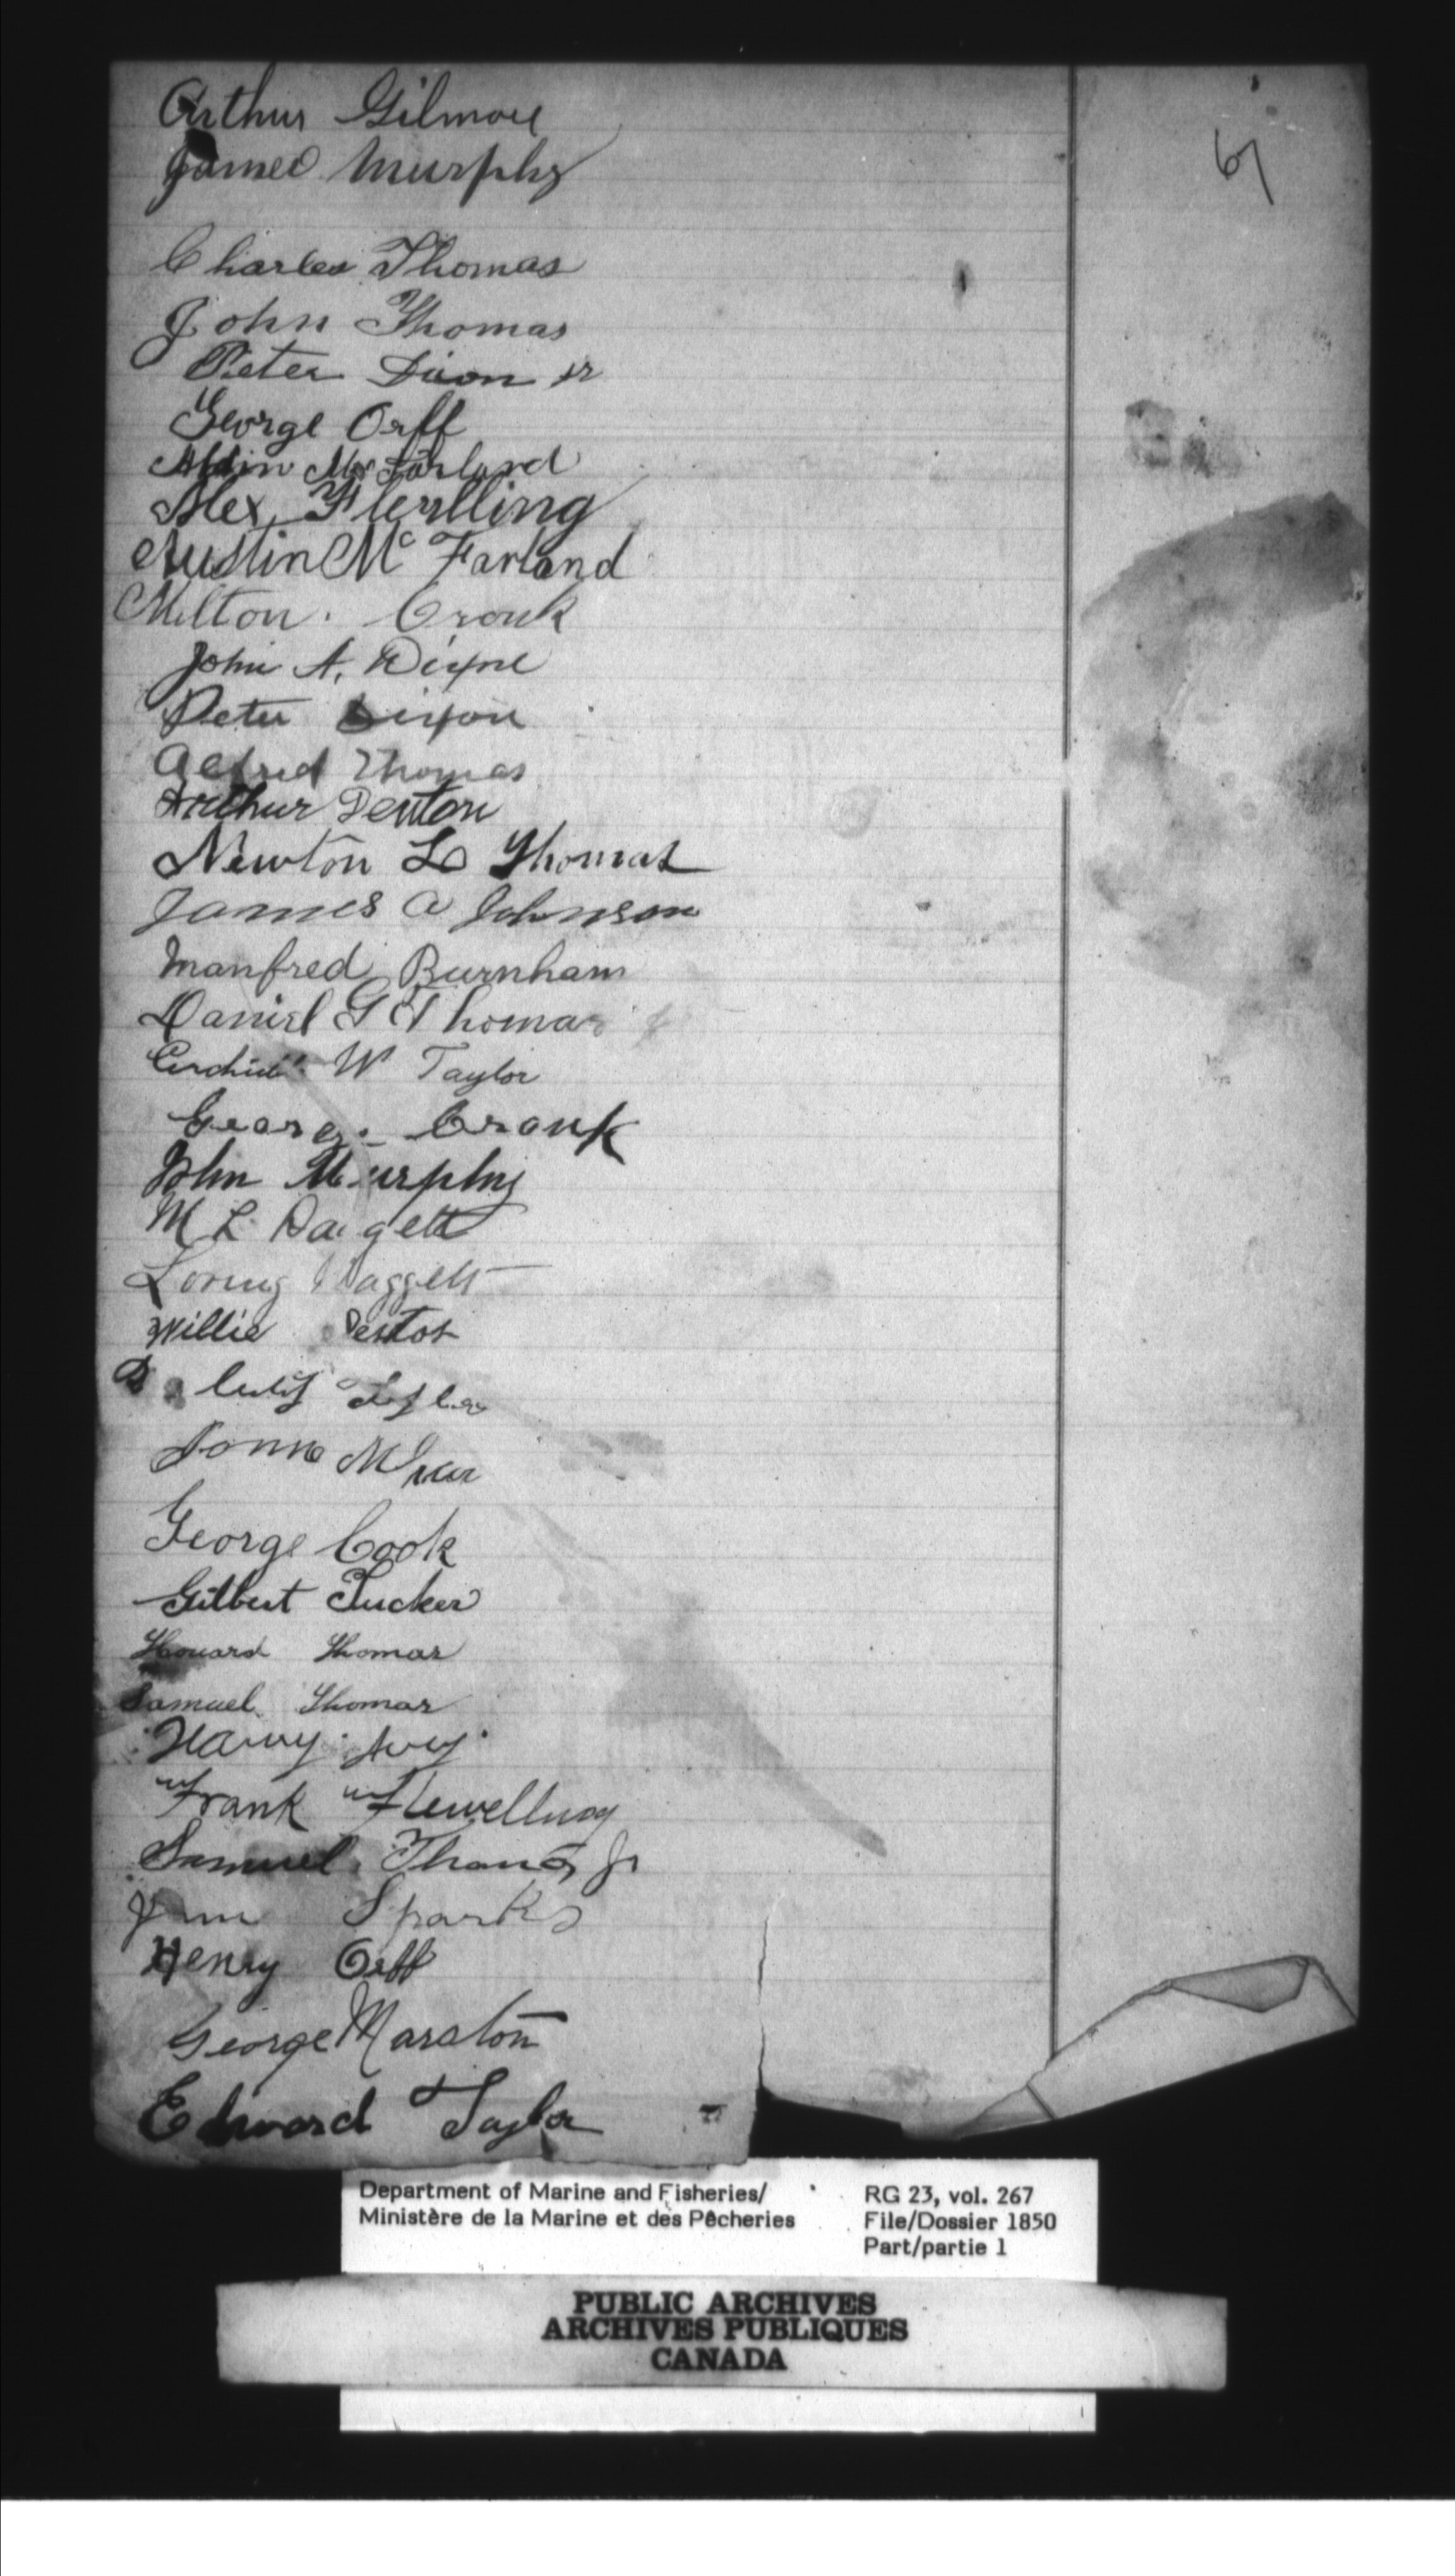 Arthur Gilmore
James Murphy
67
Charles Thomas
John Thomas
Peter Dixon Sr
George Orff
McFarland
Alex, Flewlling
Austin Mc Farland
Milton. Cronk
John A. Dixon
Peter Dixon
Alfred Thomas
Arthur Denton
Newton L Thomas
James A Johnson
Manfred Burnham
Daniel G Thomas
Archie W Taylor
George Cronk
John Murphy
M L Daggett
Loring Daggett
Willie Denton
George Cook
Gilbert Tucker
Howard Thomas
Samuel Thomas
Harvy Ivey
Frank Flewelling
Samuel Thomas Jr
Sparks
Henry Orff
George Marston
Edward Taylor
Department of Marine and Fisheries/
Ministère de la Marine et des Pêcheries
RG 23, vol. 267
File/Dossier 1850
Part/partie 1
PUBLIC ARCHIVES
ARCHIVES PUBLIQUES
CANADA